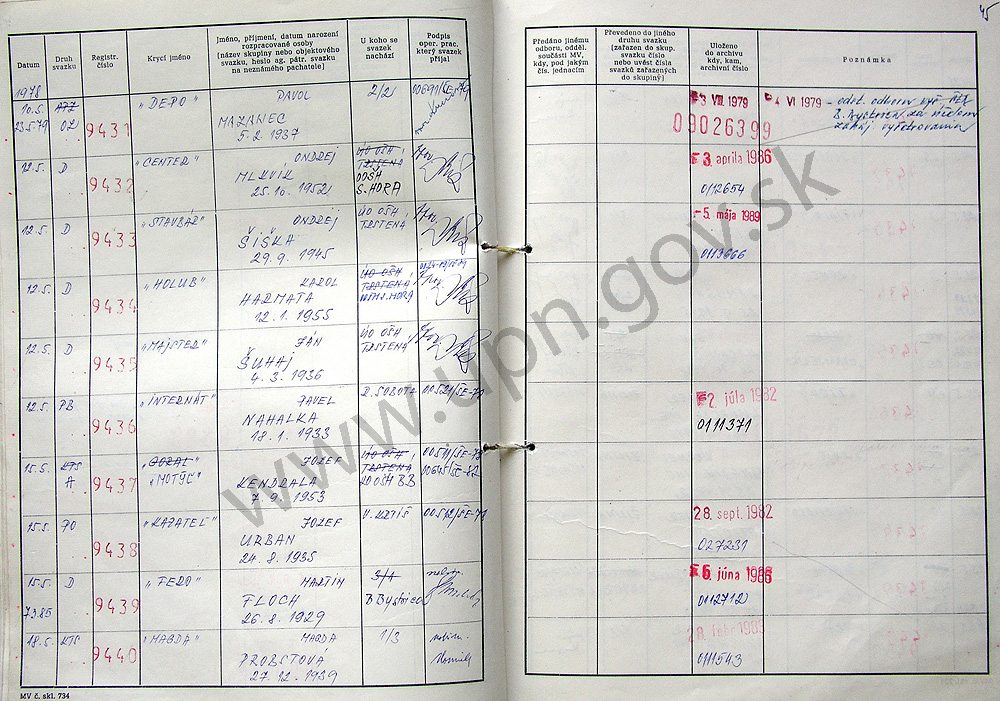 45
Datum
Druh svazku
Registr. číslo
Krycí jméno
Jméno, příjmení, datum narození
rozpracované osoby
(název skupiny nebo objektového
svazku, heslo ag. pátr. svazku
na neznámého pachatele)
U koho se
svazek
nachází
Podpis
oper. prac.
který svazek
přijal
Předáno jinému
odboru, odděl.
součásti MV,
kdy, pod jakým
čís. jednacím
Převedeno do jiného
druhu svazku
(zařazen do skup.
svazku číslo
nebo uvést čísla
svazků zařazených
do skupiny)
Uloženo
do archivu
kdy, kam,
archivní číslo
Poznámka
1978
10.5. „DEPO" PAVOL 2/2
23.5.79 9431 MAZANEC
5.2.1937
3 VIII 1979 4 VI 1979
09026399
12.5. D „CENTER" ONDREJ
9432 MLKVIK S. HORA
25.10.1952
3 apríla 1986
0112654
12.5. D „STAVBÁR" ONDREJ ÚO OŠH, TRSTENÁ
9433 ŠIŠKA
29.9.1945
5. mája 1989
0113666
12.5. D „HOLUB" KAROL
9434 HARMATA
12.1.1955
12.5. D „MAJSTER" JÁN ÚO OŠH, TRSTENÁ
9435 ŠUHAJ
4.3.1936
12.5. PB „INTERNÁT" PAVEL R. SOBOTA
9436 NAHALKA
18.1.1933
2. júla 1982
0111371
15.5. KTS „GORAL" JOZEF ÚO OŠH, TRSTENÁ
A 9437 „MOTÝĽ" KENDRALA OŠH BB
7.9.1953
15.5. PO „KAZATEĽ" JOZEF V. KRTÍŠ
9438 URBAN
24.8.1935
28. sept. 1982
027231
15.5. D „FERO" MARTIN 3/4
7.3.85 9439 FLOCH B Bystrica
26.8.1929
6. júna 1986
0112712
18.5. KTS „MAGDA" MAGDA 1/3
9440 PROBSTOVÁ
27.12.1939
0111543
MV č. skl. 734
www.upn.gov.sk